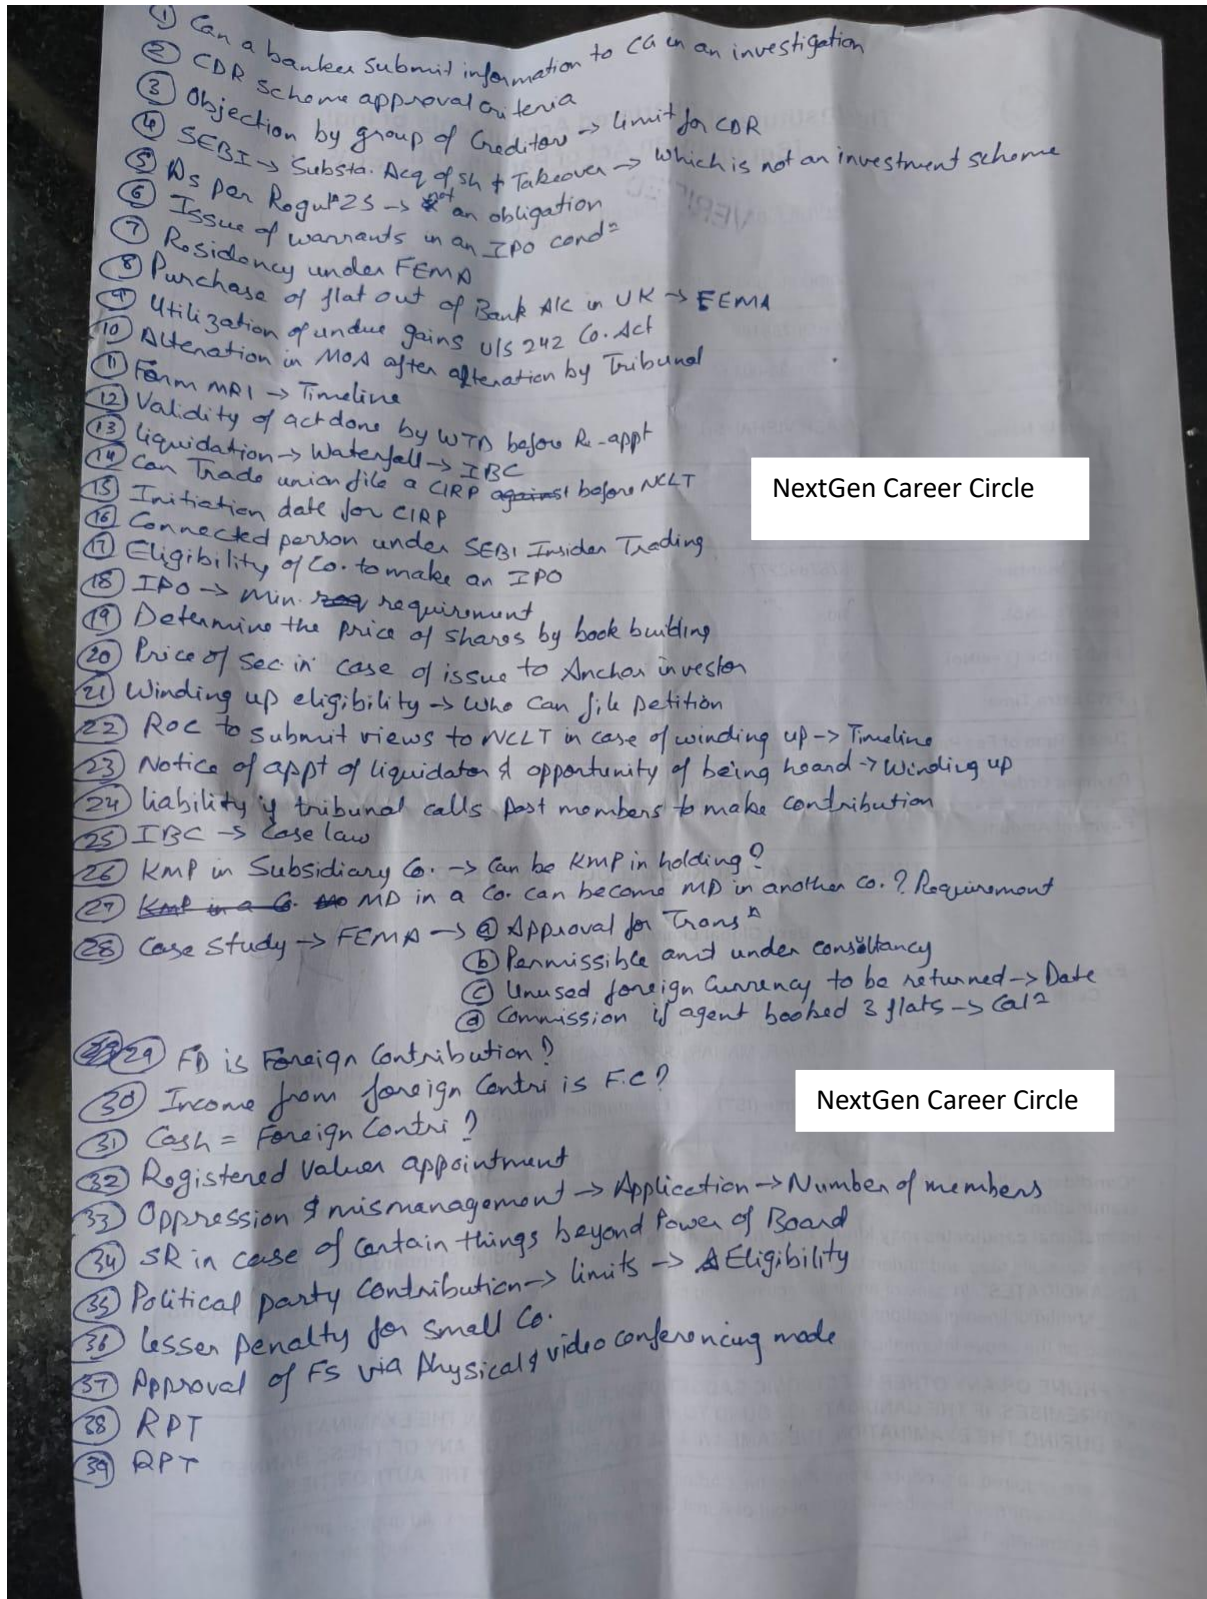 ① Can a banker submit information to CG in an investigation
② CDR scheme approval criteria
③ Objection by group of Creditors → limit for CDR
④ SEBI → Substa. Acq of sh & Takeover → Which is not an investment scheme
⑤ As per Regulⁿ 25 → not an obligation
⑥ Issue of warrants in an IPO condⁿ
⑦ Residency under FEMA
⑧ Purchase of flat out of Bank A/c in UK → FEMA
⑨ Utilization of undue gains u/s 242 Co. Act
⑩ Alteration in MOA after alteration by Tribunal
⑪ Form MR1 → Timeline
⑫ Validity of act done by WTD before Re-appt
⑬ liquidation → Waterfall → IBC
⑭ Can Trade union file a CIRP against before NCLT
⑮ Initiation date for CIRP
⑯ Connected person under SEBI Insider Trading
⑰ Eligibility of Co. to make an IPO
⑱ IPO → Min. req requirement
⑲ Determine the price of shares by book building
⑳ Price of sec in case of issue to Anchor investor
㉑ Winding up eligibility → Who can file petition
㉒ ROC to submit views to NCLT in case of winding up → Timeline
㉓ Notice of appt of liquidator & opportunity of being heard → Winding up
㉔ liability if tribunal calls past members to make contribution
㉕ IBC → Case law
㉖ KMP in Subsidiary Co. → Can be KMP in holding?
㉗ KMP in a Co. MD in a Co. can become MD in another co.? Requirement
㉘ Case Study → FEMA → ⓐ Approval for Transⁿ
ⓑ Permissible amt under consultancy
ⓒ Unused foreign Currency to be returned → Date
ⓓ Commission if agent booked 3 flats → Calⁿ
㉙ FD is Foreign Contribution?
㉚ Income from foreign Contri is F.C?
㉛ Cash = Foreign Contri?
㉜ Registered Valuer appointment
㉝ Oppression & mismanagement → Application → Number of members
㉞ SR in case of certain things beyond Power of Board
㉟ Political party Contribution → limits → Eligibility
㊱ lesser penalty for small Co.
㊲ Approval of FS via Physical & video conferencing mode
㊳ RPT
㊴ RPT
NextGen Career Circle
NextGen Career Circle